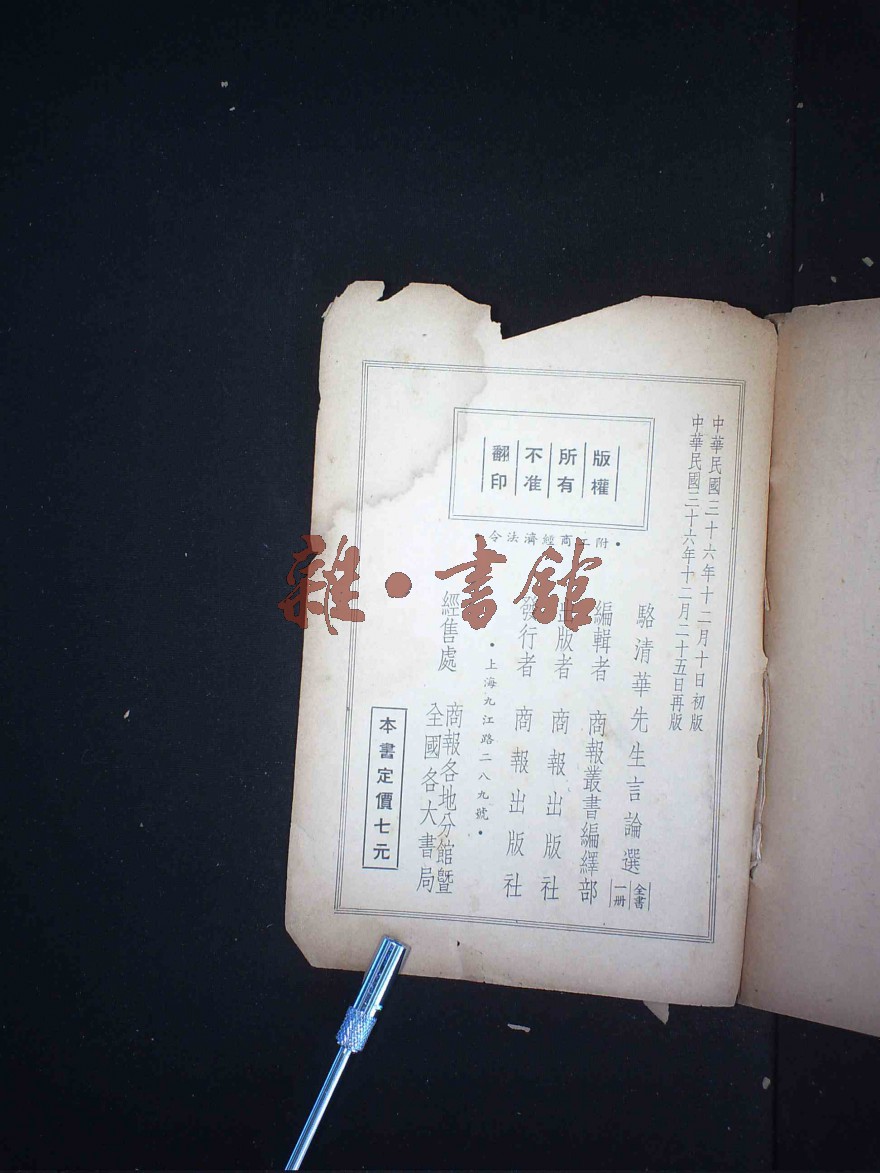 中華民國三十六年十二月十日初版
中華民國三十六年十二月二十五日再版
版權
所有
不准
翻印
•附工商經濟法令•
駱清華先生言論選
全書
一册
編輯者 商報叢書編繹部
出版者 商報出版社
發行者 商報出版社
•上海九江路二八九號•
經售處 商報各地分館暨
全國各大書局
本書定價七元
雜•書館